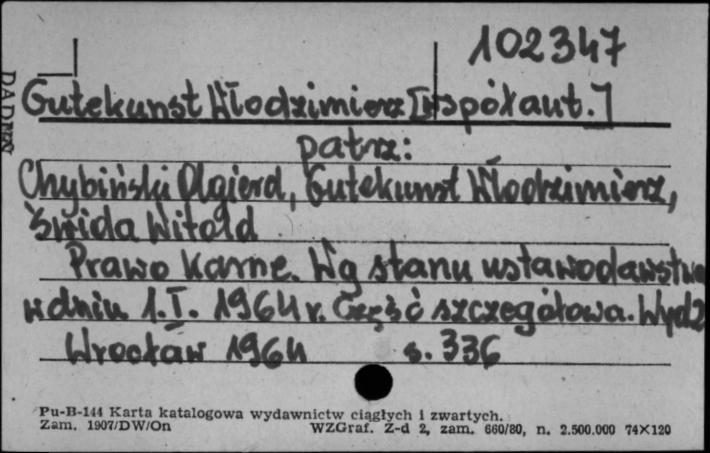 102347
Gutekunst Włodzimierz [współaut.]
patrz:
Chybiński Olgierd, Gutekunst Włodzimierz,
Świda Witold
Prawo karne. Wg stanu ustawodawstwa
w dniu 1.I. 1964 r. Część szczegółowa. Wyd 2
Wrocław 1964 s. 336
Pu-B-144 Karta katalogowa wydawnictw ciągłych i zwartych.
Zam. 1907/DW/On WZGraf. Z-d 2, zam. 660/80, n. 2.500.000 74×120